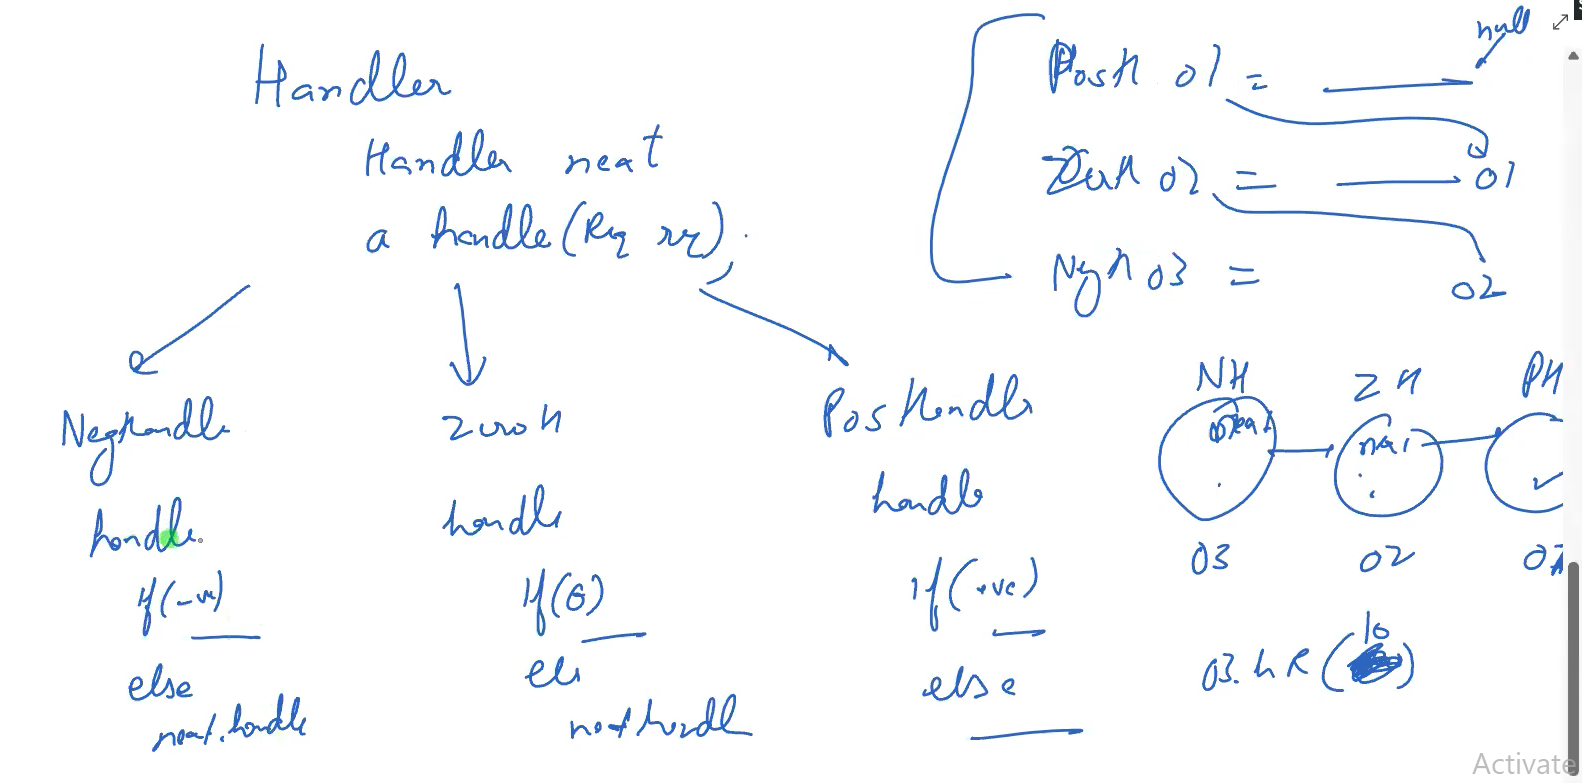 Handler
Handler next
a handle(Req rq);
Neghandle
handle.
if(-ve)
else
next.handle
ZeroH
handle
if(0)
els
next handl
PosHandler
handle
if(+ve)
else
null
PosH 01 =
ZerH 02 = 01
NegH 03 = 02
NH ZH PH
next next
03 02 01
10
03.hR( )
Activate